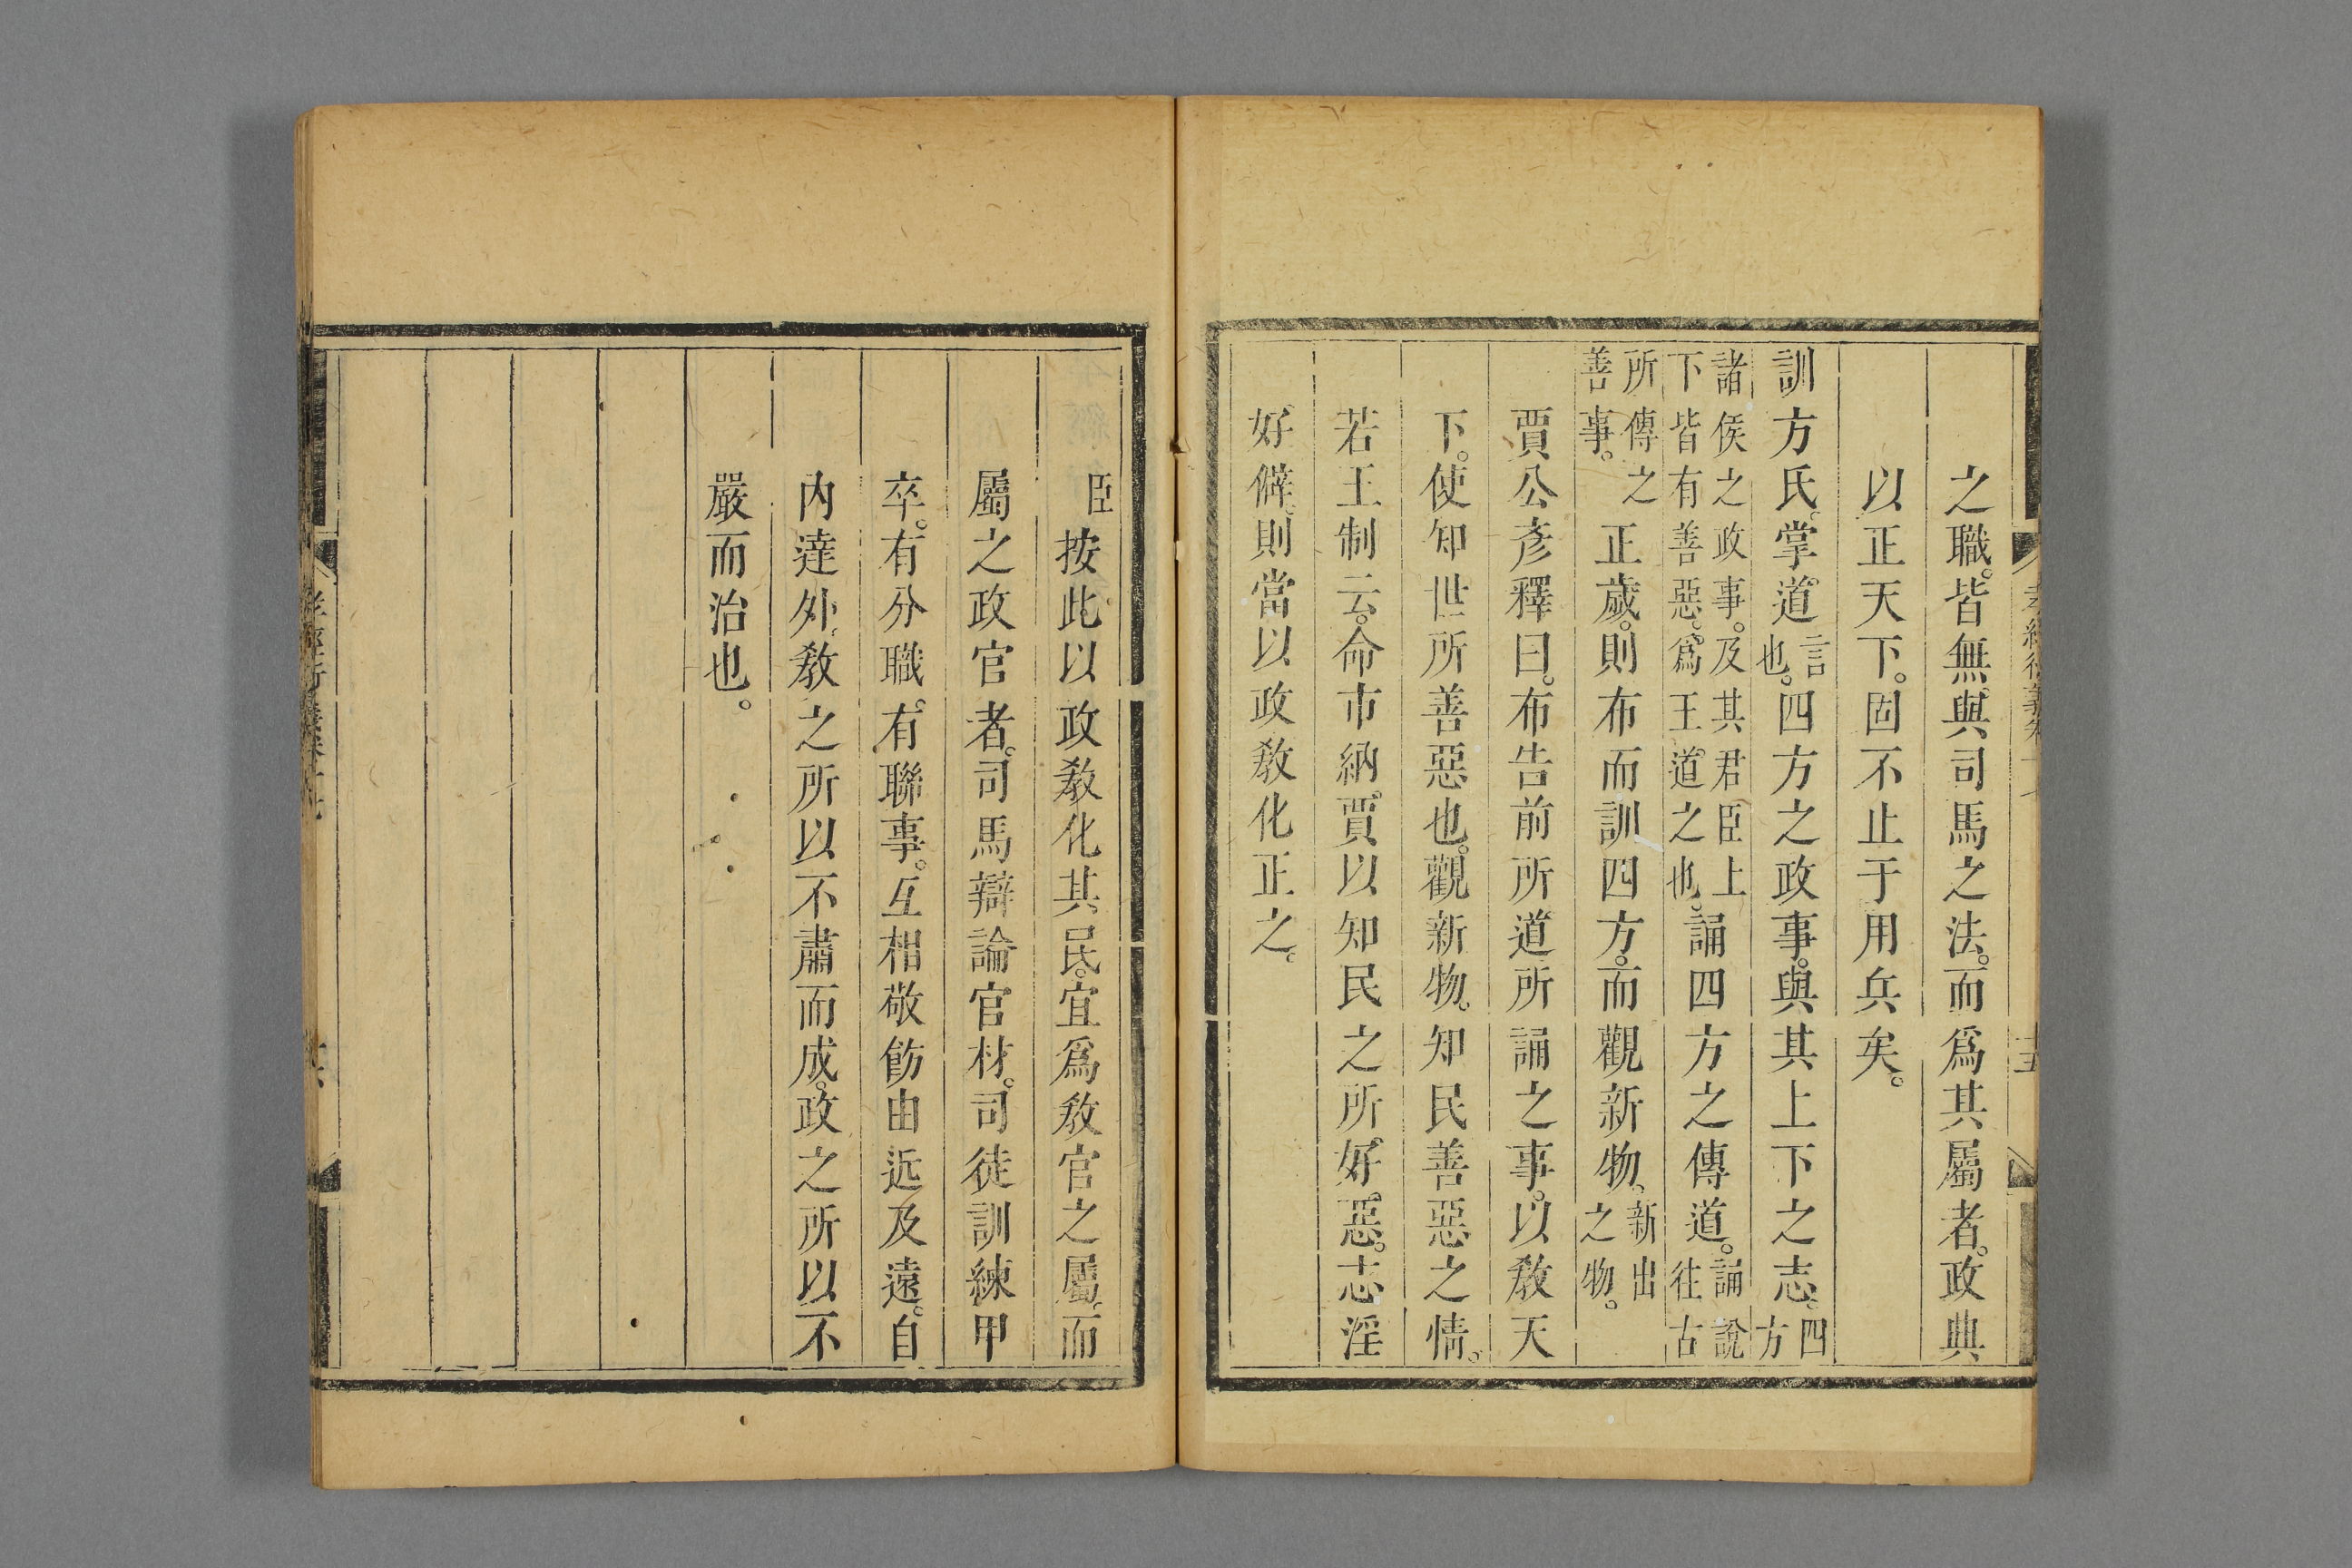 之職。皆無與司馬之法。而爲其屬者。政典
以正天下。固不止于用兵矣。
訓方氏。掌道言也。四方之政事。與其上下之志。四方
諸侯之政事。及其君臣上
下皆有善惡。爲王道之也。誦四方之傳道。誦說往古
所傳之
善事。正歲。則布而訓四方。而觀新物。新出之物。
賈公彥釋曰。布告前所道所誦之事。以敎天
下。使知世所善惡也。觀新物。知民善惡之情。
若王制云。命市納賈以知民之所好惡。志淫
好僻。則當以政敎化正之。
臣按此以政敎化其民。宜爲敎官之屬。而
屬之政官者。司馬辯論官材。司徒訓練甲
卒。有分職。有聯事。互相敬飭由近及遠。自
內達外。敎之所以不肅而成。政之所以不
嚴而治也。